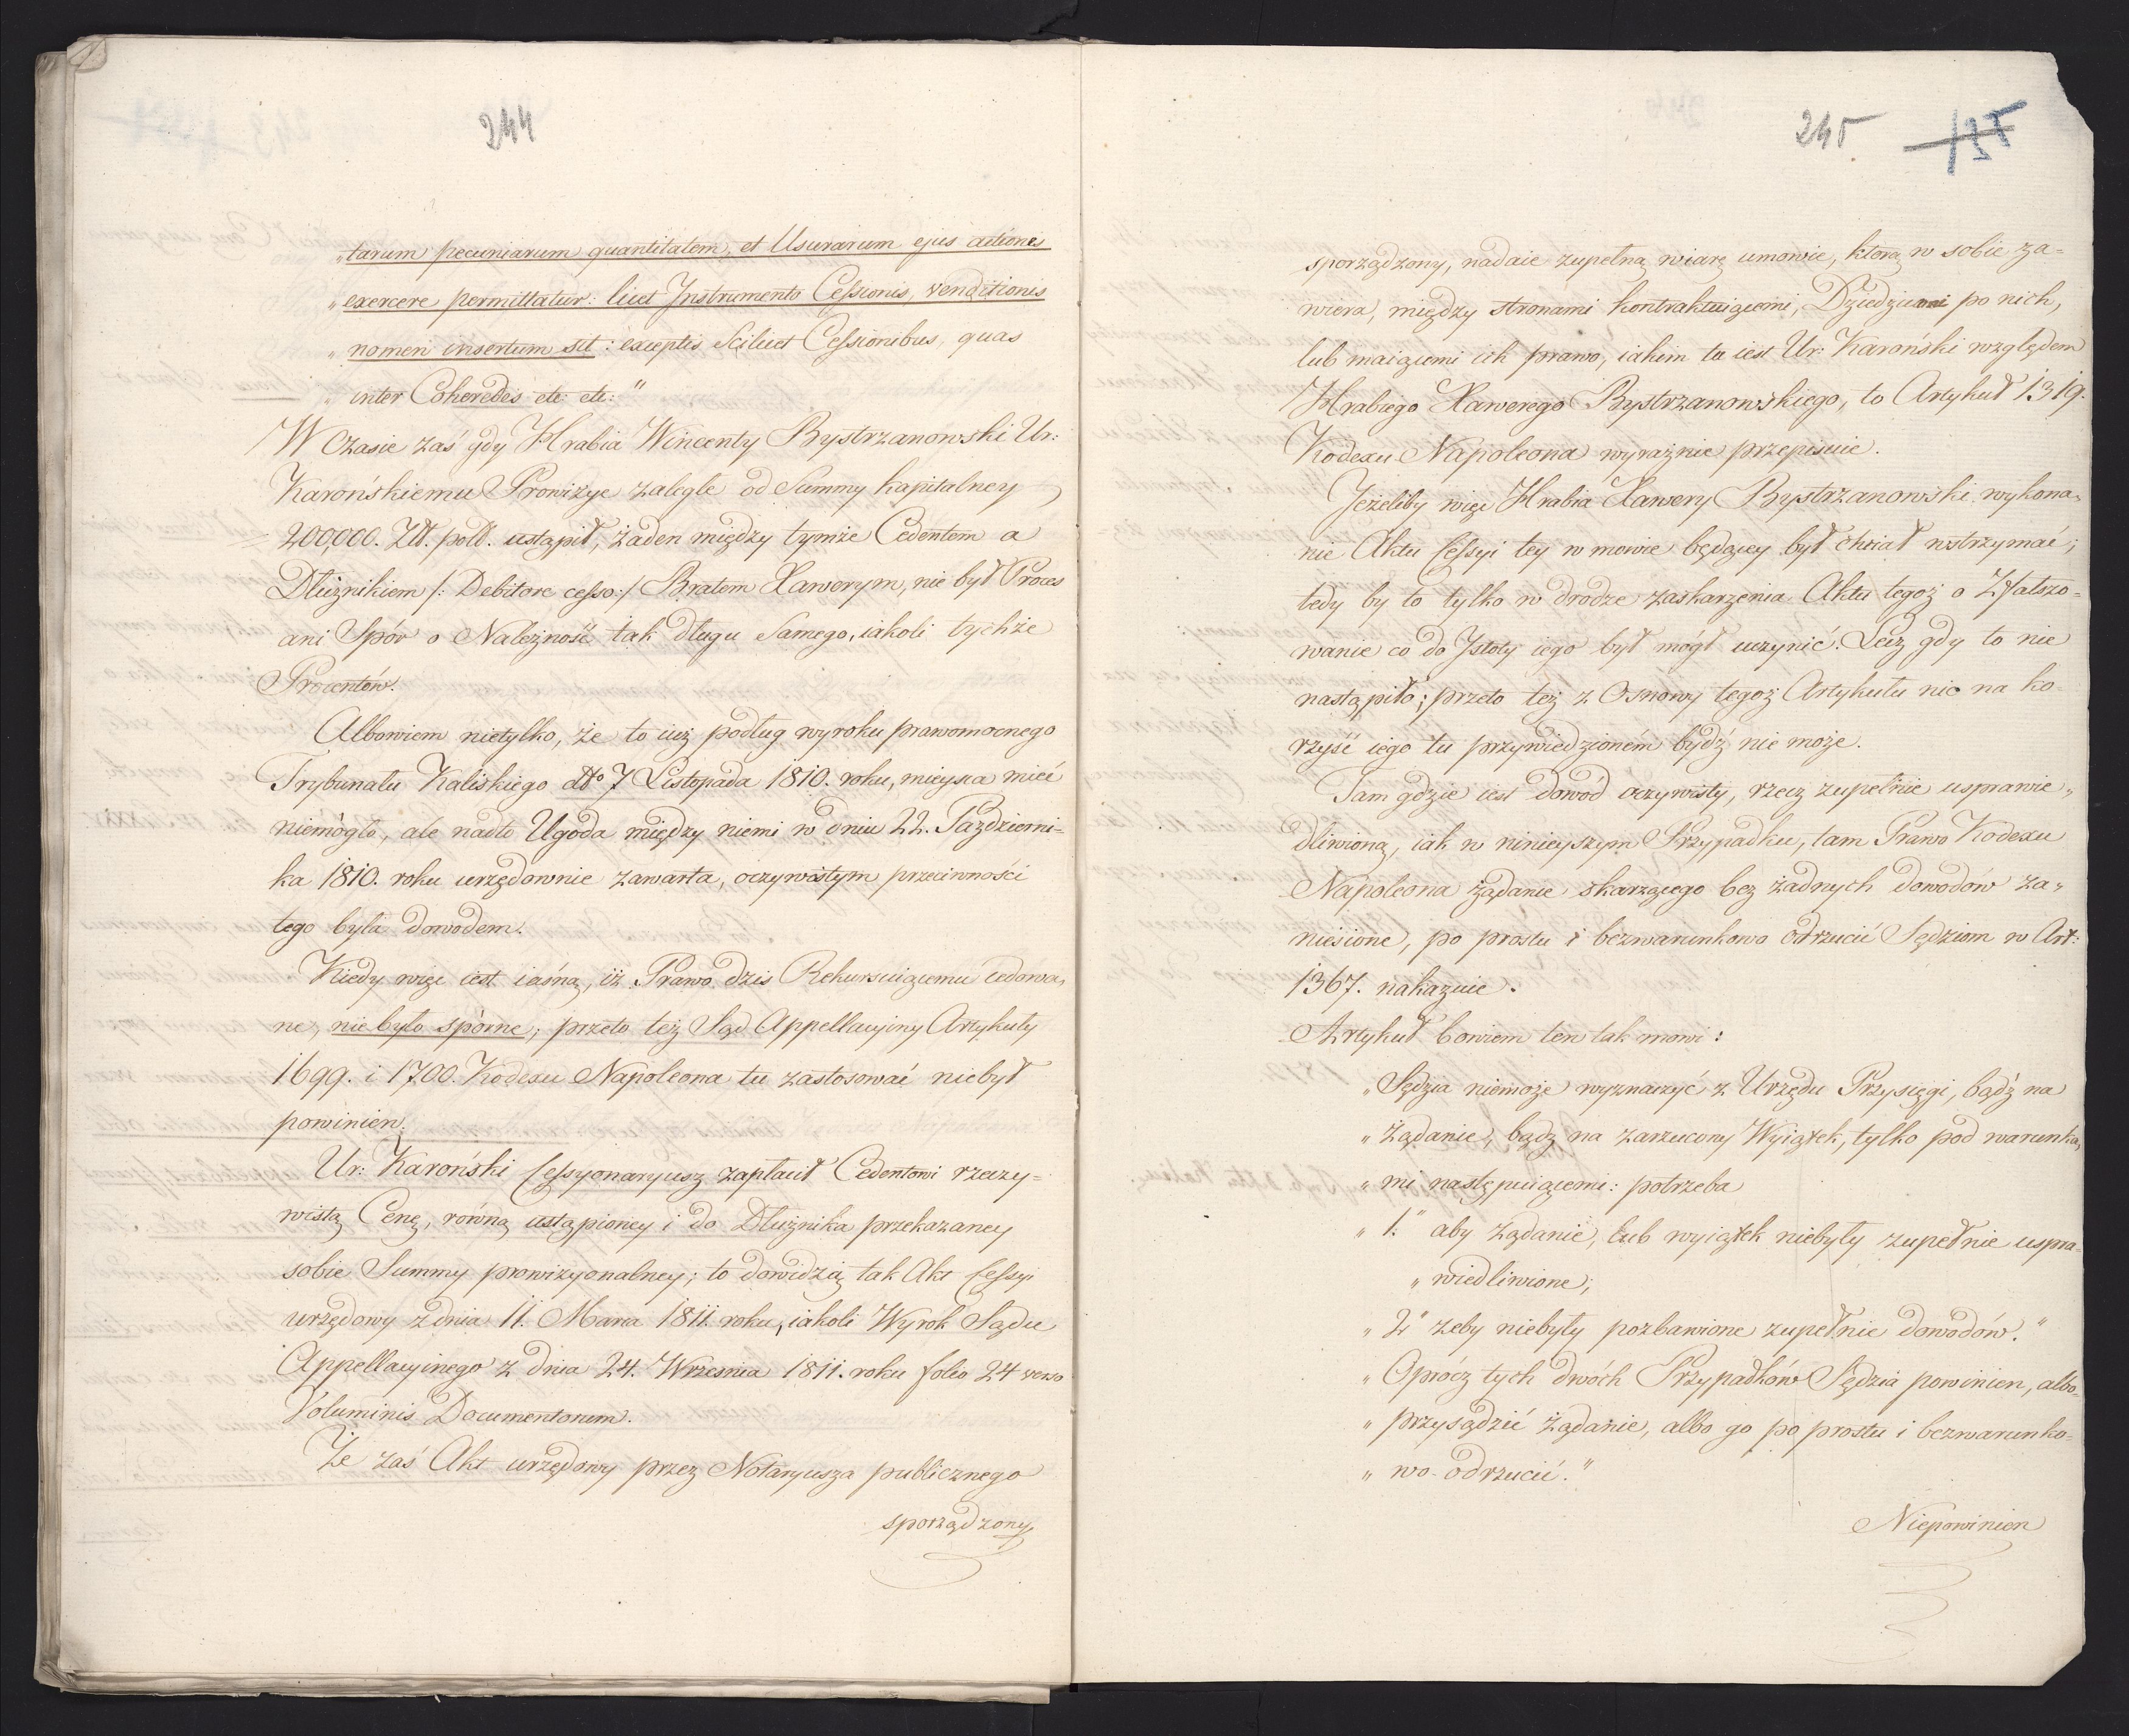 244
„tarum pecuniarum quantitatem, et Usurarum ejus actiones
„exercere permittatur: licet Instrumento Cessionis, venditionis
„nomen insertum sit: exceptis Scilicet Cessionibus, quas
„inter Coheredes etc etc:"
W Czasie zaś gdy Hrabia Wincenty Bystrzanowski Ur:
Karońskiemu Prowizye zaległe od Summy kapitalney
200,000. Złł. poll. ustąpił, żaden między tymże Cedentem a
Dłużnikiem /: Debitore cesso:/ Bratem Xawerym, nie był Proces
ani Spór o Należność tak długu Samego, iakoli tychże
Procentów.
Albowiem nietylko, że to iuż podług wyroku prawomocnego
Trybunału Kaliskiego dtto 7 Listopada 1810. roku, mieysca mieć
niemogło, ale nadto Ugoda między niemi w dniu 22. Październi-
ka 1810. roku urzędownie zawarta, oczywistym przeciwności
tego była dowodem.
Kiedy więc iest iasną, iż Prawo dziś Rekursuiącemu cedowa„
ne, nie było spòrne; przeto też Sąd Appellacyiny Artykuły
1699. i 1700. Kodexu Napoleona tu zastosować niebył
powinien.
Ur: Karoński Cessyonaryusz zapłacił Cedentowi rzeczy=
wistą Cenę, równą ustąpioney i do Dłużnika przekazaney
sobie Summy prowizyonalney; to dowidzią tak Akt Cessyi
urzędowy z dnia 11. Marca 1811. roku, iakoli Wyrok Sądu
Appellacyinego z dnia 24. Września 1811. roku folio 24 verso
Voluminis Documentorum.
Że zaś Akt urzędowy przez Notaryusza publicznego
sporządzony,
245. 125
sporządzony, nadaie zupełną wiarę umowie, którą w sobie za=
wiera, między stronami kontraktuiącemi, Dziedzicami po nich,
lub maiącemi ich prawo, iakim tu iest Ur: Karoński względem
Hrabiego Xawerego Bystrzanowskiego, to Artykuł 1319.
Kodexu Napoleona wyraźnie przepisuie.
Jeżeliby więc Hrabia Xawery Bystrzanowski wykona„
nie Aktu Cessyi tey w mowie będącey był chciał wstrzymać;
tedy by to tylko w drodze zaskarżenia Aktu tegoż o Zfałszo=
wanie co do Istoty iego był mógł uczynić. Lecz gdy to nie
nastąpiło; przeto też z Osnowy tegoż Artykułu nic na ko=
rzyść iego tu przywiedzioném bydź nie może.
Tam gdzie iest dowód oczywisty, rzecz zupełnie usprawie„
dliwioną, iak w ninieyszym Przypadku, tam Prawo Kodexu
Napoleona żądanie skarzącego bez żadnych dowodów za„
niesione, po prostu i bezwarunkowo odrzucić Sędziom w Art:
1367. nakazuie.
Artykuł bowiem ten tak mowi:
„Sędzia niemoże wyznaczyć z Urzędu Przysięgi, bądź na
„żądanie, bądź na zarzucony Wyiątek, tylko pod warunka„
„mi następuiącemi: potrzeba
„1." aby żądanie, lub wyiątek niebyły zupełnie uspra=
„wiedliwione;
„2" żeby niebyły pozbawione zupełnie dowodów."
„Oprócz tych dwóch Przypadków Sędzia powinien, albo
„przysądzić żądanie, albo go po prostu i bezwarunko=
„wo odrzucić."
Niepowinien